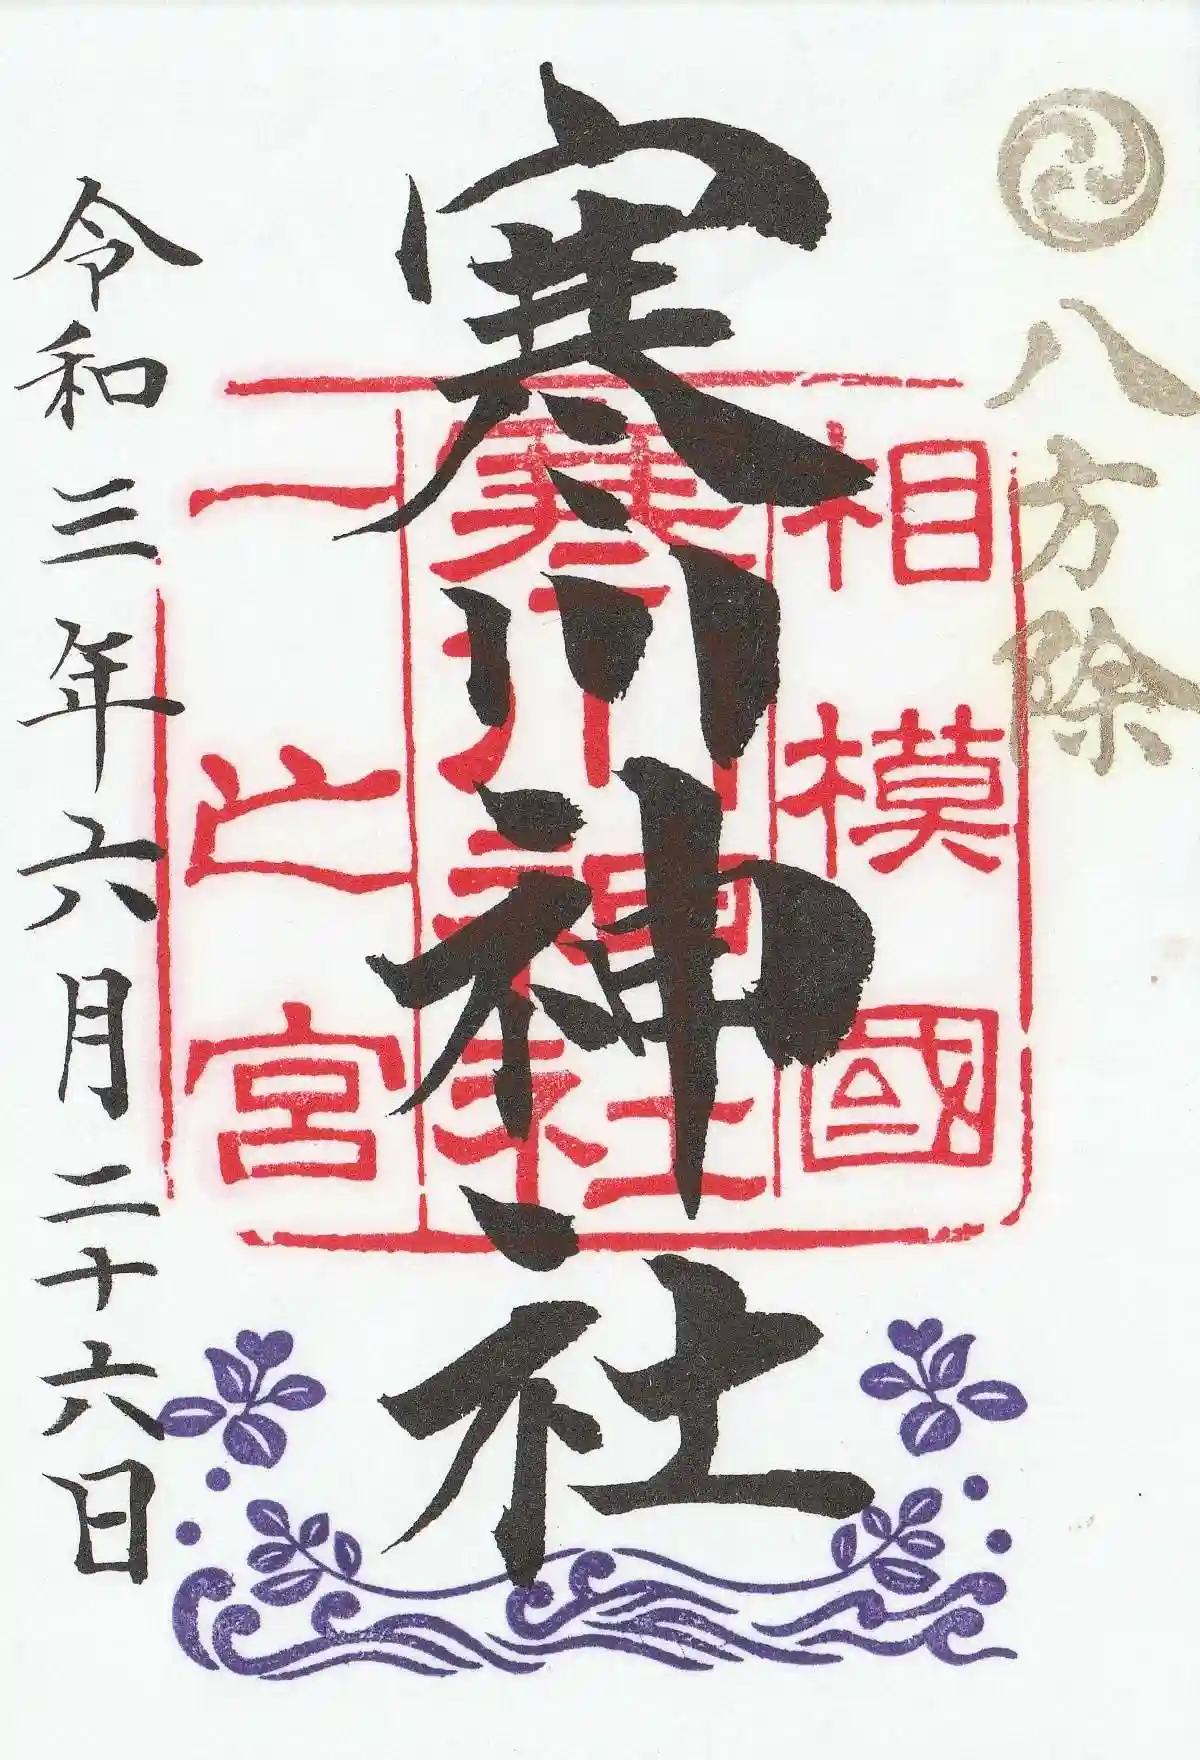 八方除
寒川神社
相模國
寒川神社
一之宮
令和三年六月二十六日